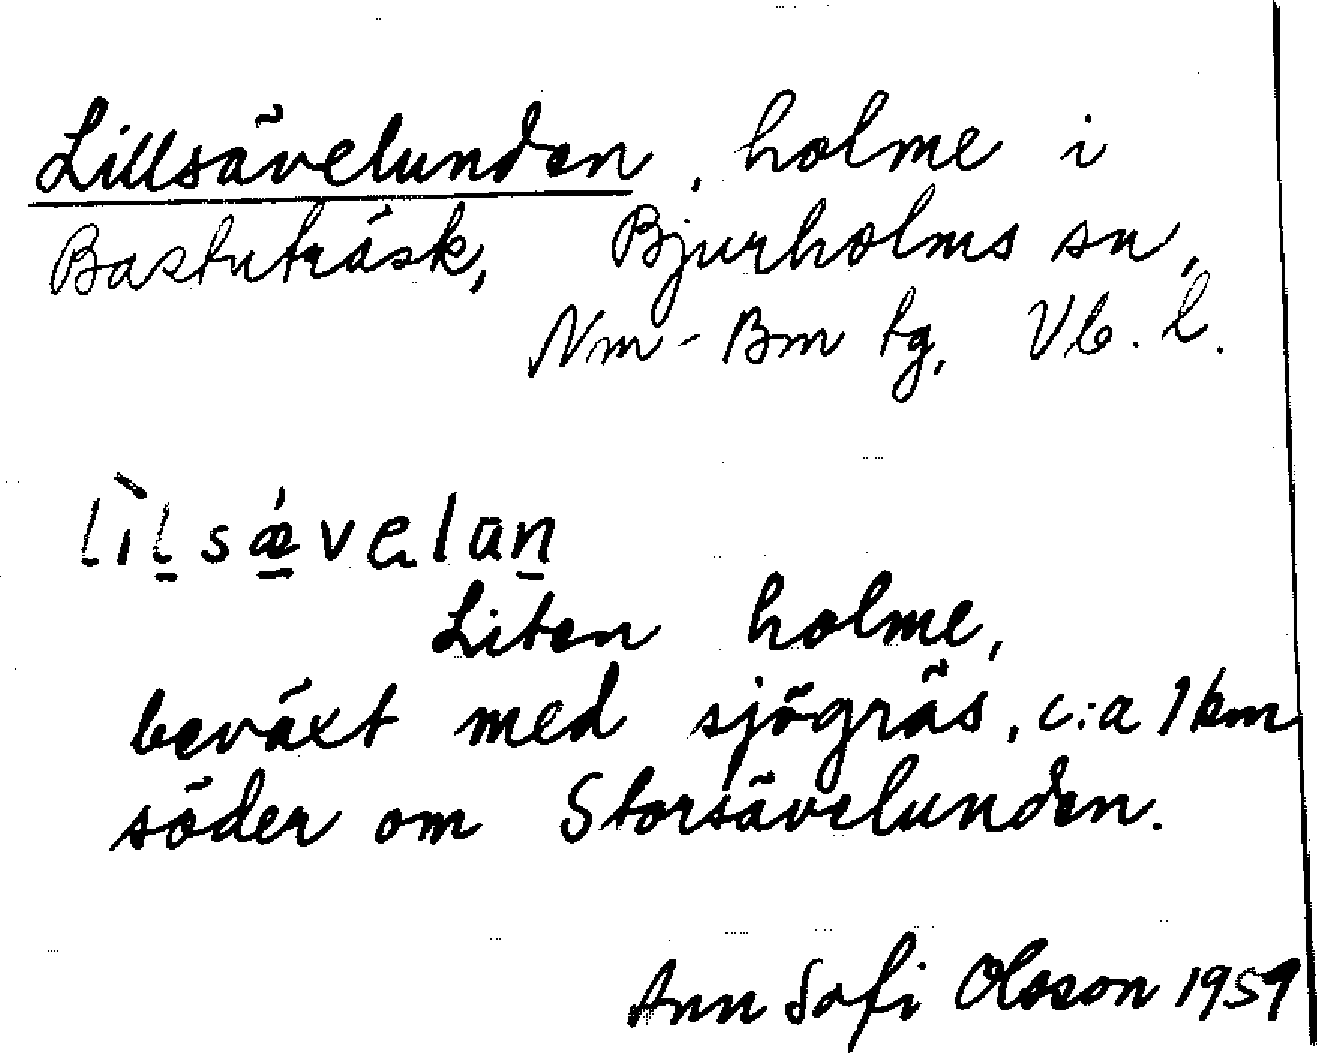 Lillsävelunden, holme i
Bastuträsk, Bjurholms sn,
Nm-Bm tg, Vb. l.
lìl̠sǽ̠velan̠
Liten holme,
beväxt med sjögräs, c:a 1 km
söder om Storsävelunden.
Ann Sofi Olsson 1959